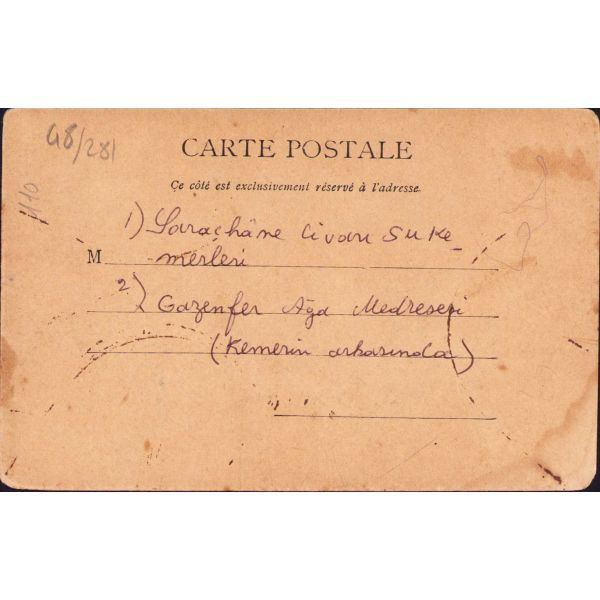 48/281
110
CARTE POSTALE
Ce côté est exclusivement réservé à l'adresse.
1) Saraçhâne Civarı Su Ke-
M merleri
2) Gazenfer Ağa Medresesi
(Kemerin arkasında)